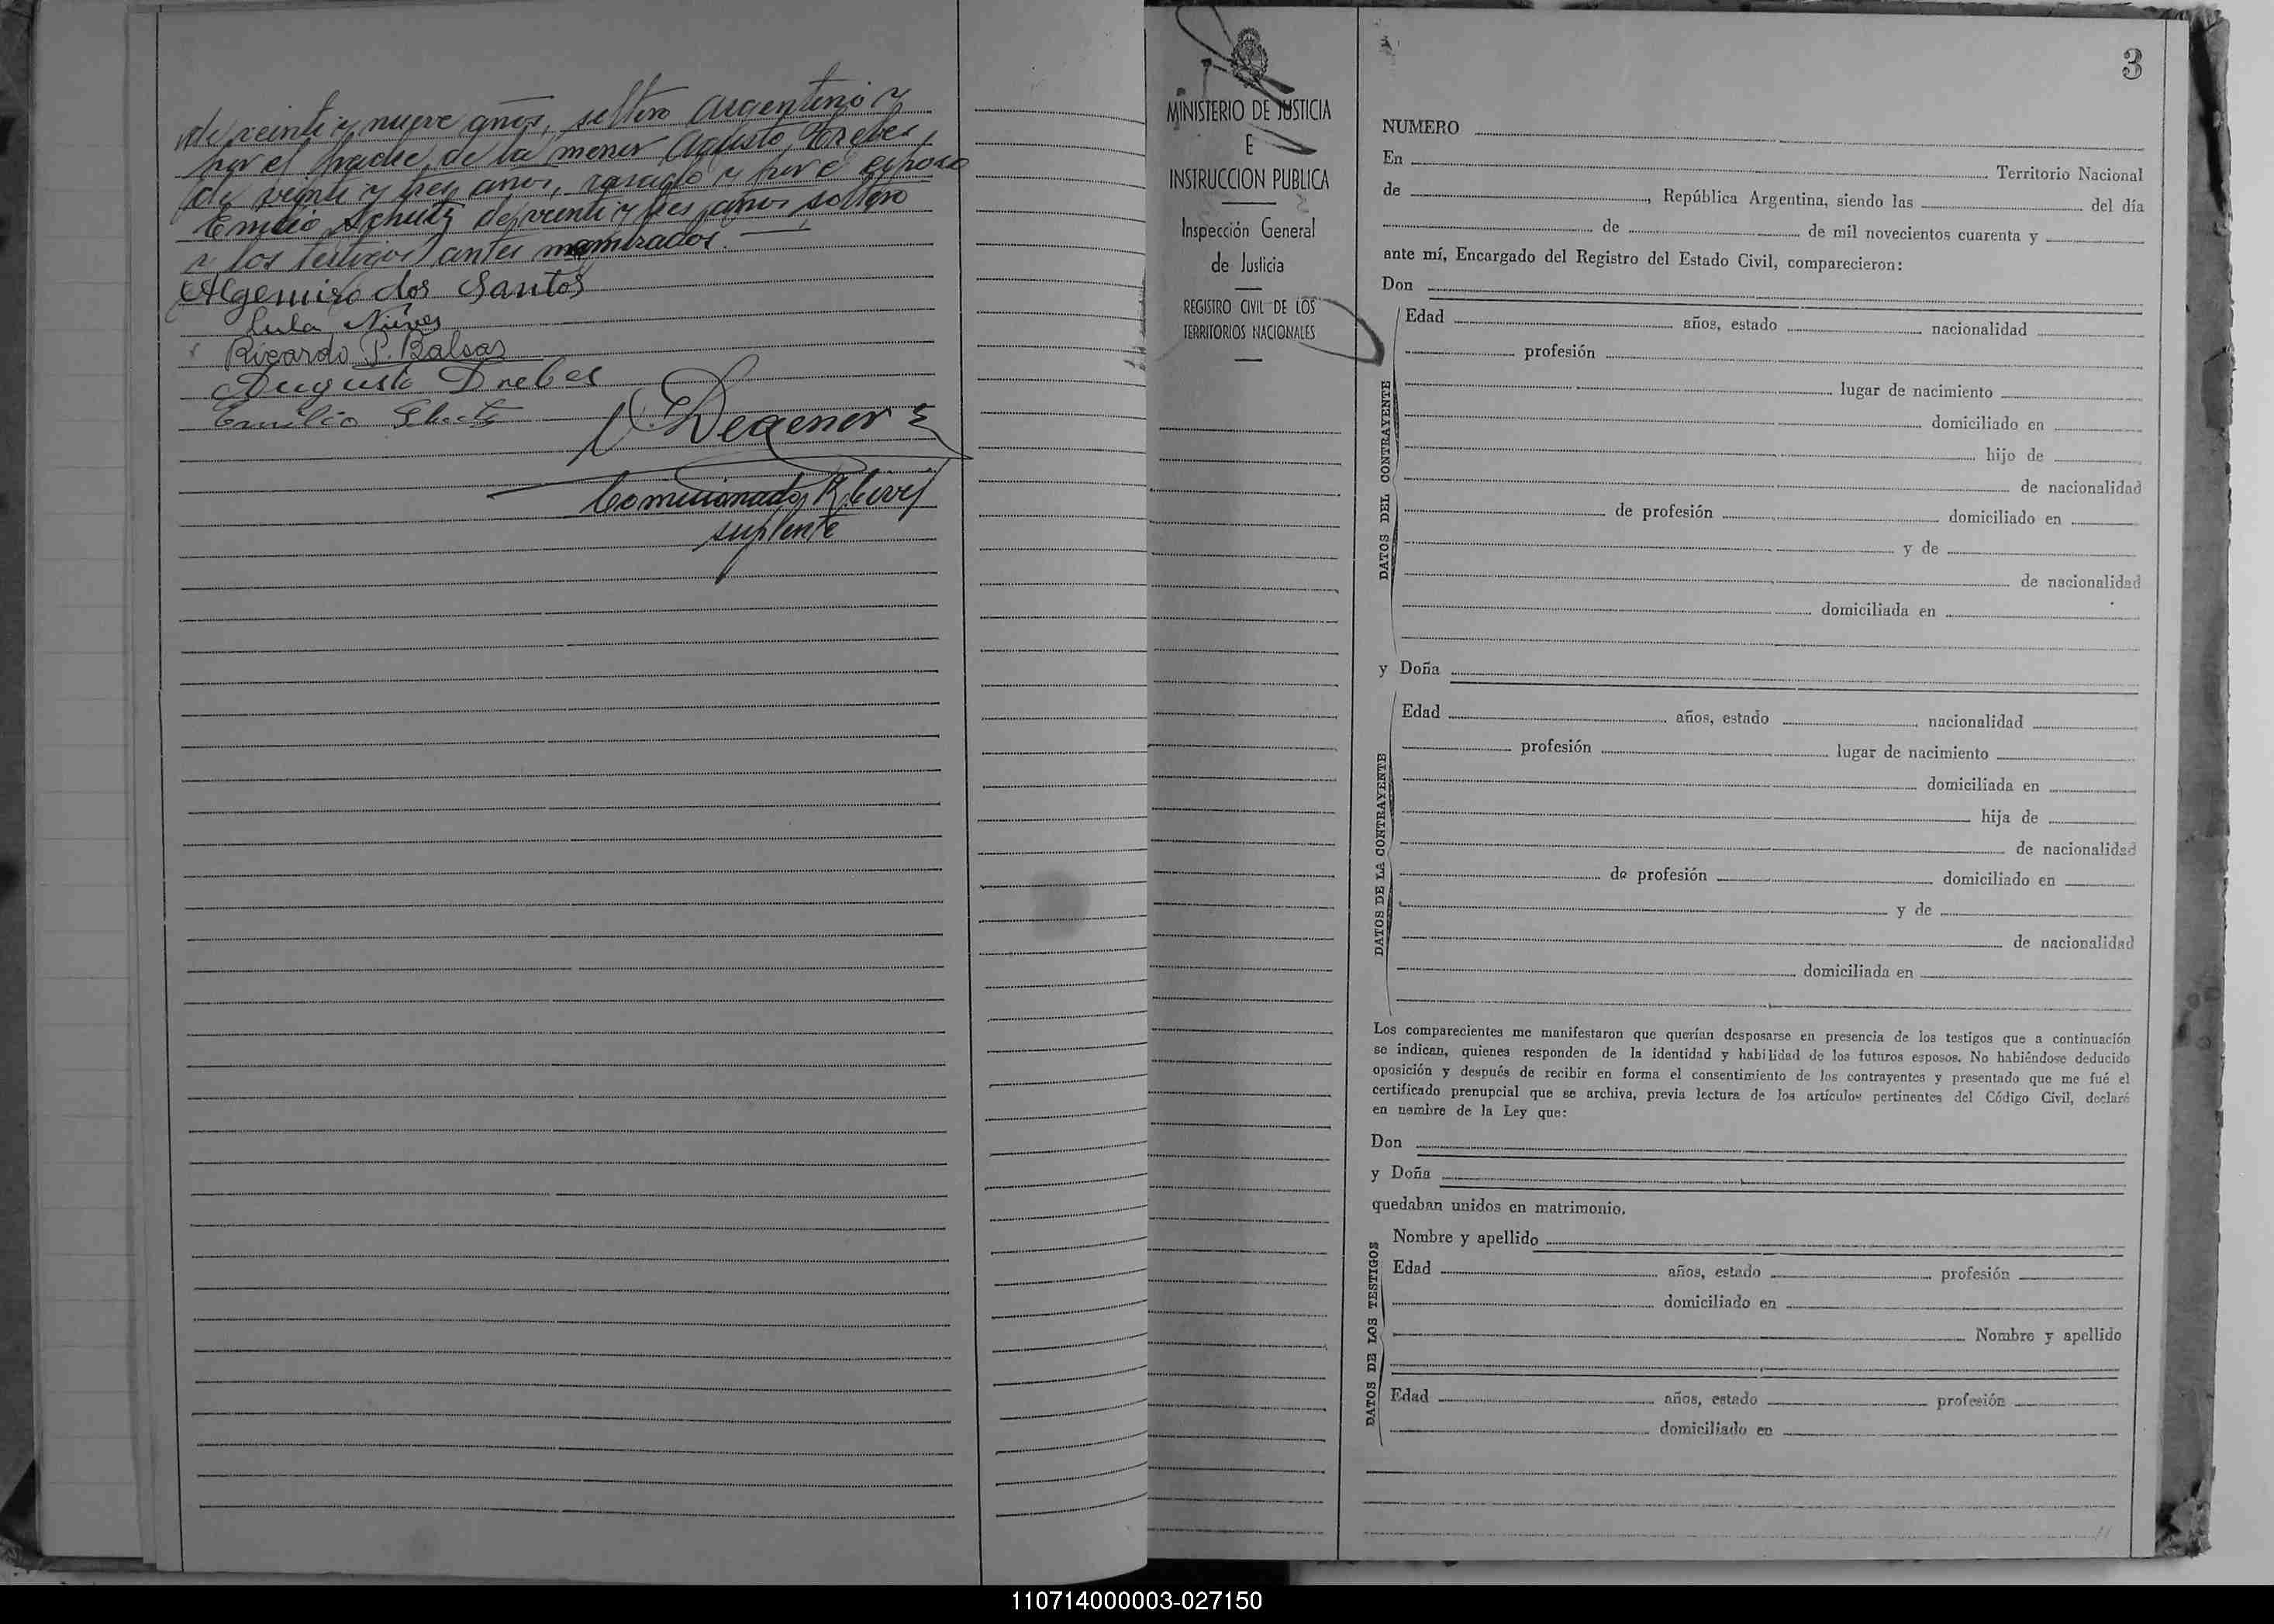 de veinte y nueve años, soltero Argentino y
por el padre, de la menor Agusto Drebes,
de veinte y tres años, casado y por el esposo
Emilio Schutz de veinte y tres años soltero
y los testigos antes
Algemiro dos Santos
Lula Núnes
Ricardo P. Balsas
Augusto Drebes
Emilio
Degener
suplente
MINISTERIO DE JUSTICIA
E
INSTRUCCION PUBLICA
Inspección General
de Justicia
REGISTRO CIVIL DE LOS
TERRITORIOS NACIONALES
3
NUMERO
En Territorio Nacional
de , República Argentina, siendo las del día
de de mil novecientos cuarenta y
ante mí, Encargado del Registro del Estado Civil, comparecieron:
Don
DATOS DEL CONTRAYENTE
Edad años, estado nacionalidad
profesión
lugar de nacimiento
domiciliado en
hijo de
de nacionalidad
de profesión domiciliado en
y de
de nacionalidad
domiciliada en
y Doña
DATOS DE LA CONTRAYENTE
Edad años, estado nacionalidad
profesión lugar de nacimiento
domiciliada en
hija de
de nacionalidad
de profesión domiciliado en
y de
de nacionalidad
domiciliada en
Los comparecientes me manifestaron que querían desposarse en presencia de los testigos que a continuación
se indican, quienes responden de la identidad y habilidad de los futuros esposos. No habiéndose deducido
oposición y después de recibir en forma el consentimiento de los contrayentes y presentado que me fué el
certificado prenupcial que se archiva, previa lectura de los artículos pertinentes del Código Civil, declaré
en nombre de la Ley que:
Don
y Doña
quedaban unidos en matrimonio.
DATOS DE LOS TESTIGOS
Nombre y apellido
Edad años, estado profesión
domiciliado en
Nombre y apellido
Edad años, estado profesión
domiciliado en
110714000003-027150